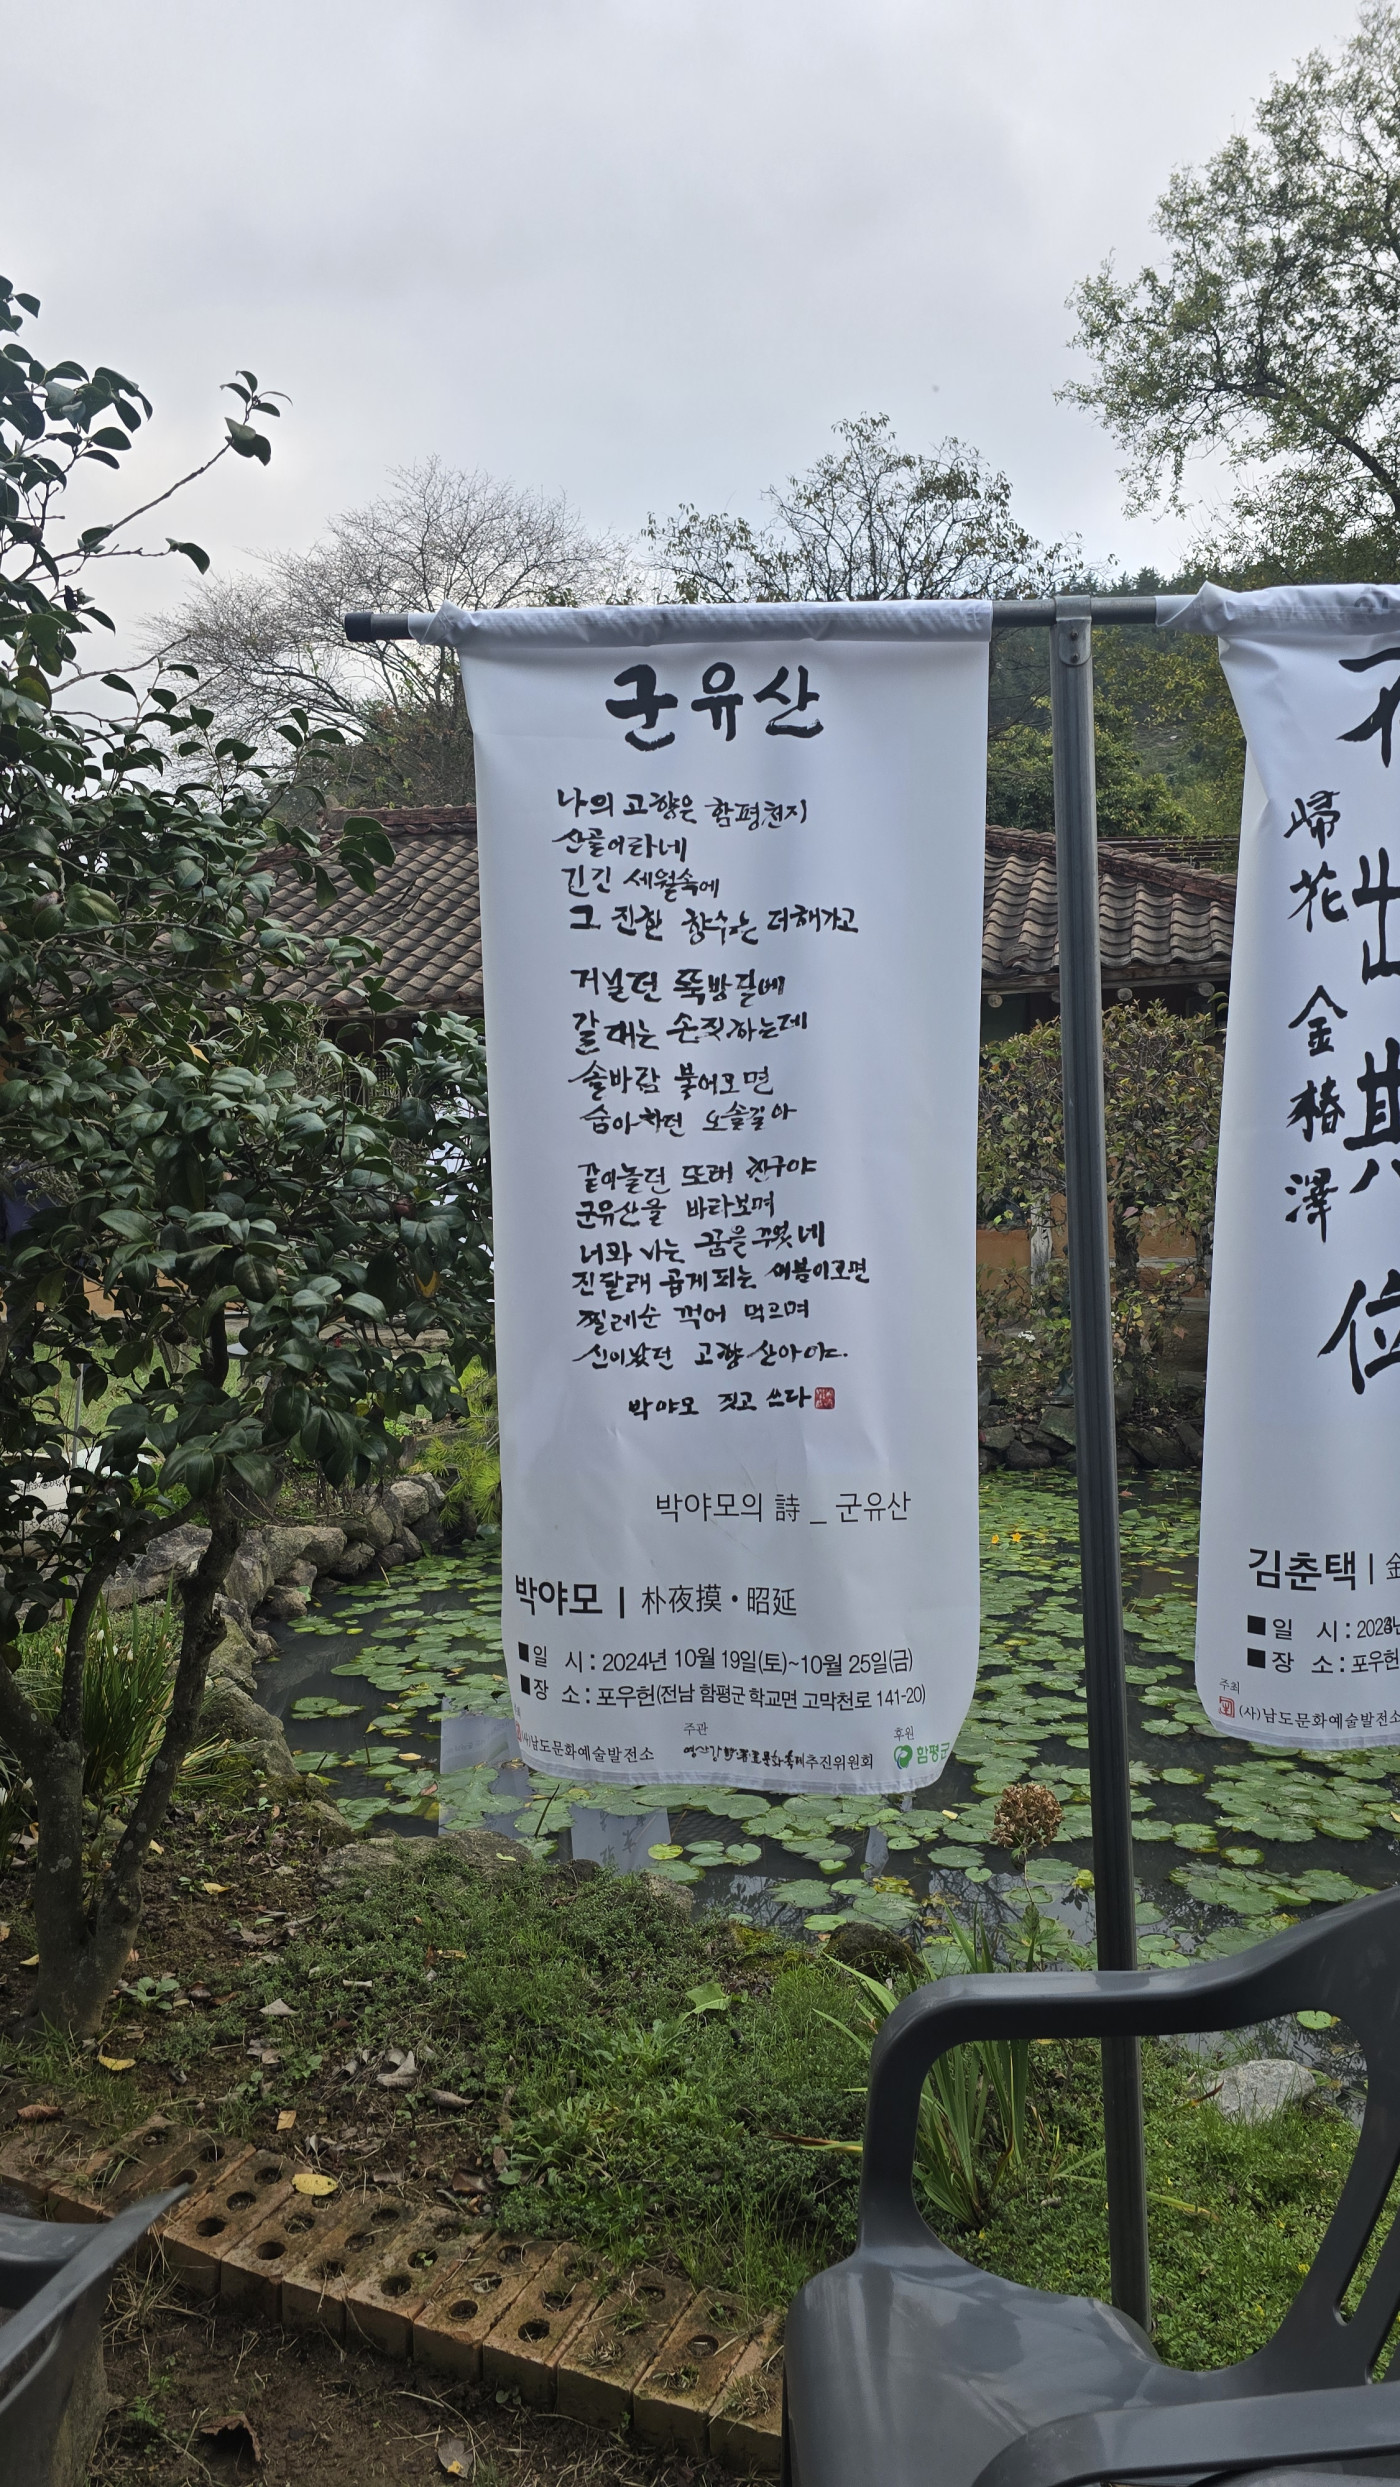 군유산
나의 고향은 함평천지
산골이라네
긴긴 세월속에
그 진한 향수는 더해가고
거닐던 뚝방길에
갈대는 손짓하는데
솔바람 불어오면
숨이차던 오솔길아
같이놀던 또래 친구야
군유산을 바라보며
너와 나는 꿈을 꾸웠네
진달래 곱게피는 새봄이오면
찔레순 꺽어 먹으며
신이났던 고향 산아야.
박야모 짓고 쓰다
박야모의 詩 _ 군유산
박야모 | 朴夜摸・昭延
■일 시 : 2024년 10월 19일(토)~10월 25일(금)
■장 소 : 포우헌(전남 함평군 학교면 고막천로 141-20)
(사)남도문화예술발전소
주관
추진위원회
후원
함평군
出其位
歸花 金椿澤
김춘택 |
■일 시 :
■장 소 : 포우헌
주최
(사)남도문화예술발전소